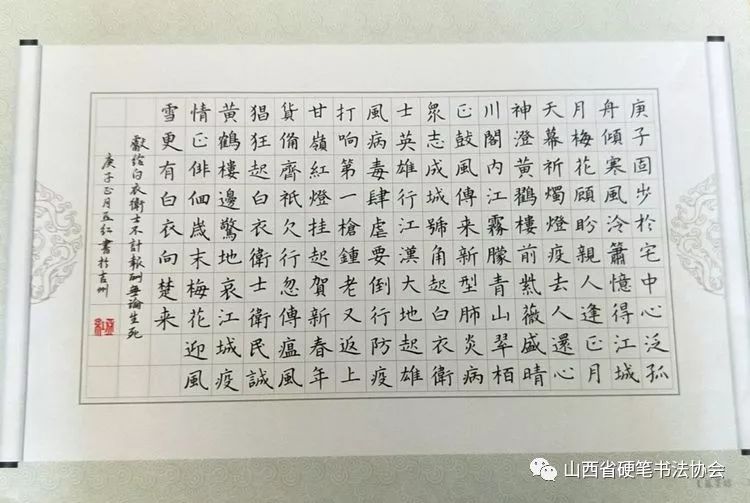 庚子固步於宅中心泛孤
舟傾寒風冷簫憶得江城
月梅花顧盼親人逢正月
天幕祈燭燈疫去人還心
神澄黃鶴樓前紫薇盛晴
川閣内江霧朦青山翠栢
正鼓風傳来新型肺炎病
眾志成城號角起白衣衛
士英雄行江漢大地起雄
風病毒肆虐要倒行防疫
打响第一槍鍾老又返上
甘嶺紅燈挂起賀新春年
貨備齊祇欠行忽傳瘟風
猖狂起白衣衛士衛民誠
黃鶴樓邊驚地哀江城疫
情正徘徊歲末梅花迎風
雪更有白衣向楚来
獻给白衣衛士不計報酬無論生死
庚子正月红書於吉州
山西省硬笔书法协会